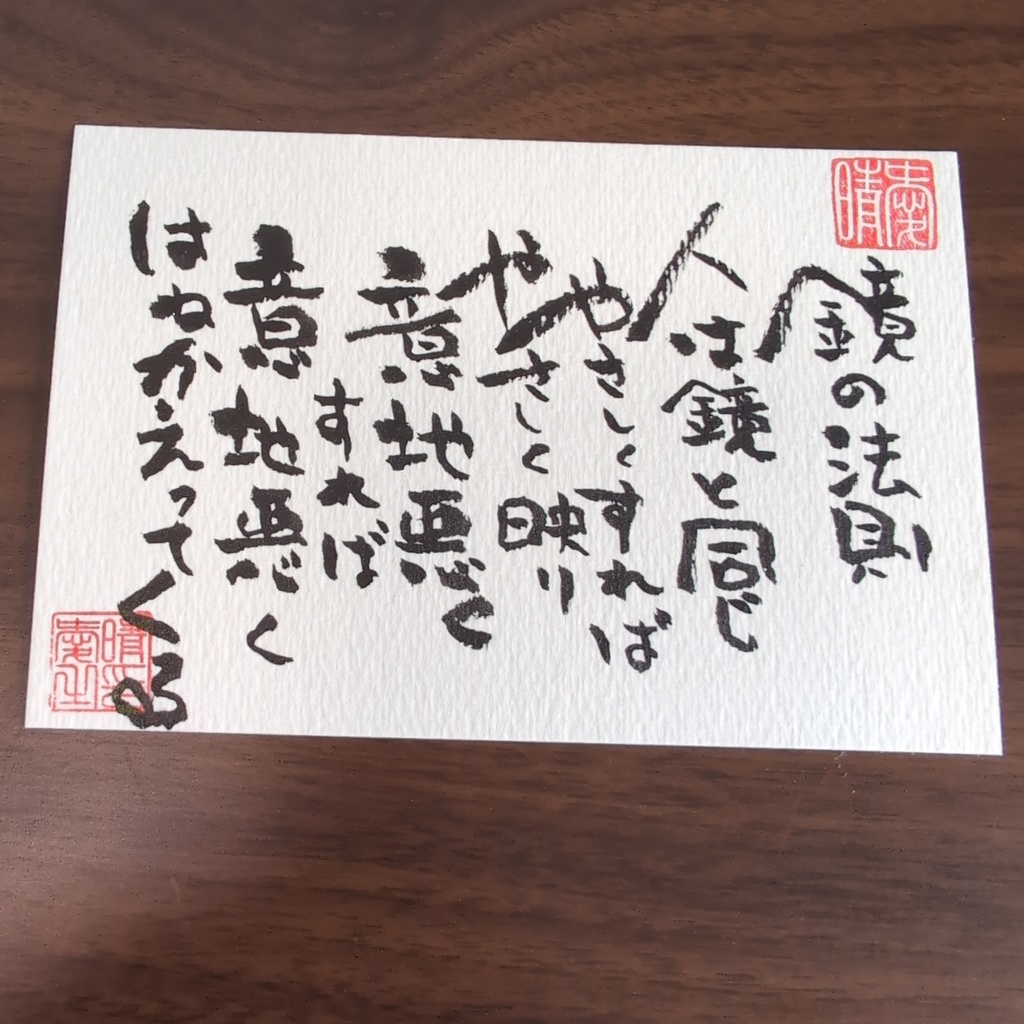 鏡の法則
人は鏡と同じ
やさしくすれば
やさしく映り
意地悪を
すれば
意地悪く
はねかえってくる